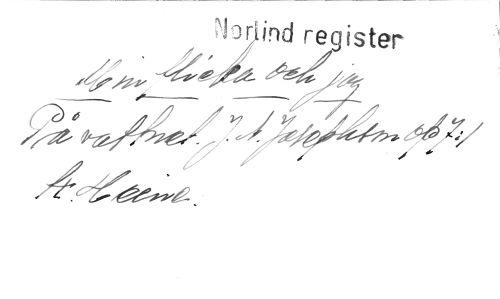 Norlind register
Min flicka och jag
På vattnet. J. A. Josephson op 7:1
H. Heine.